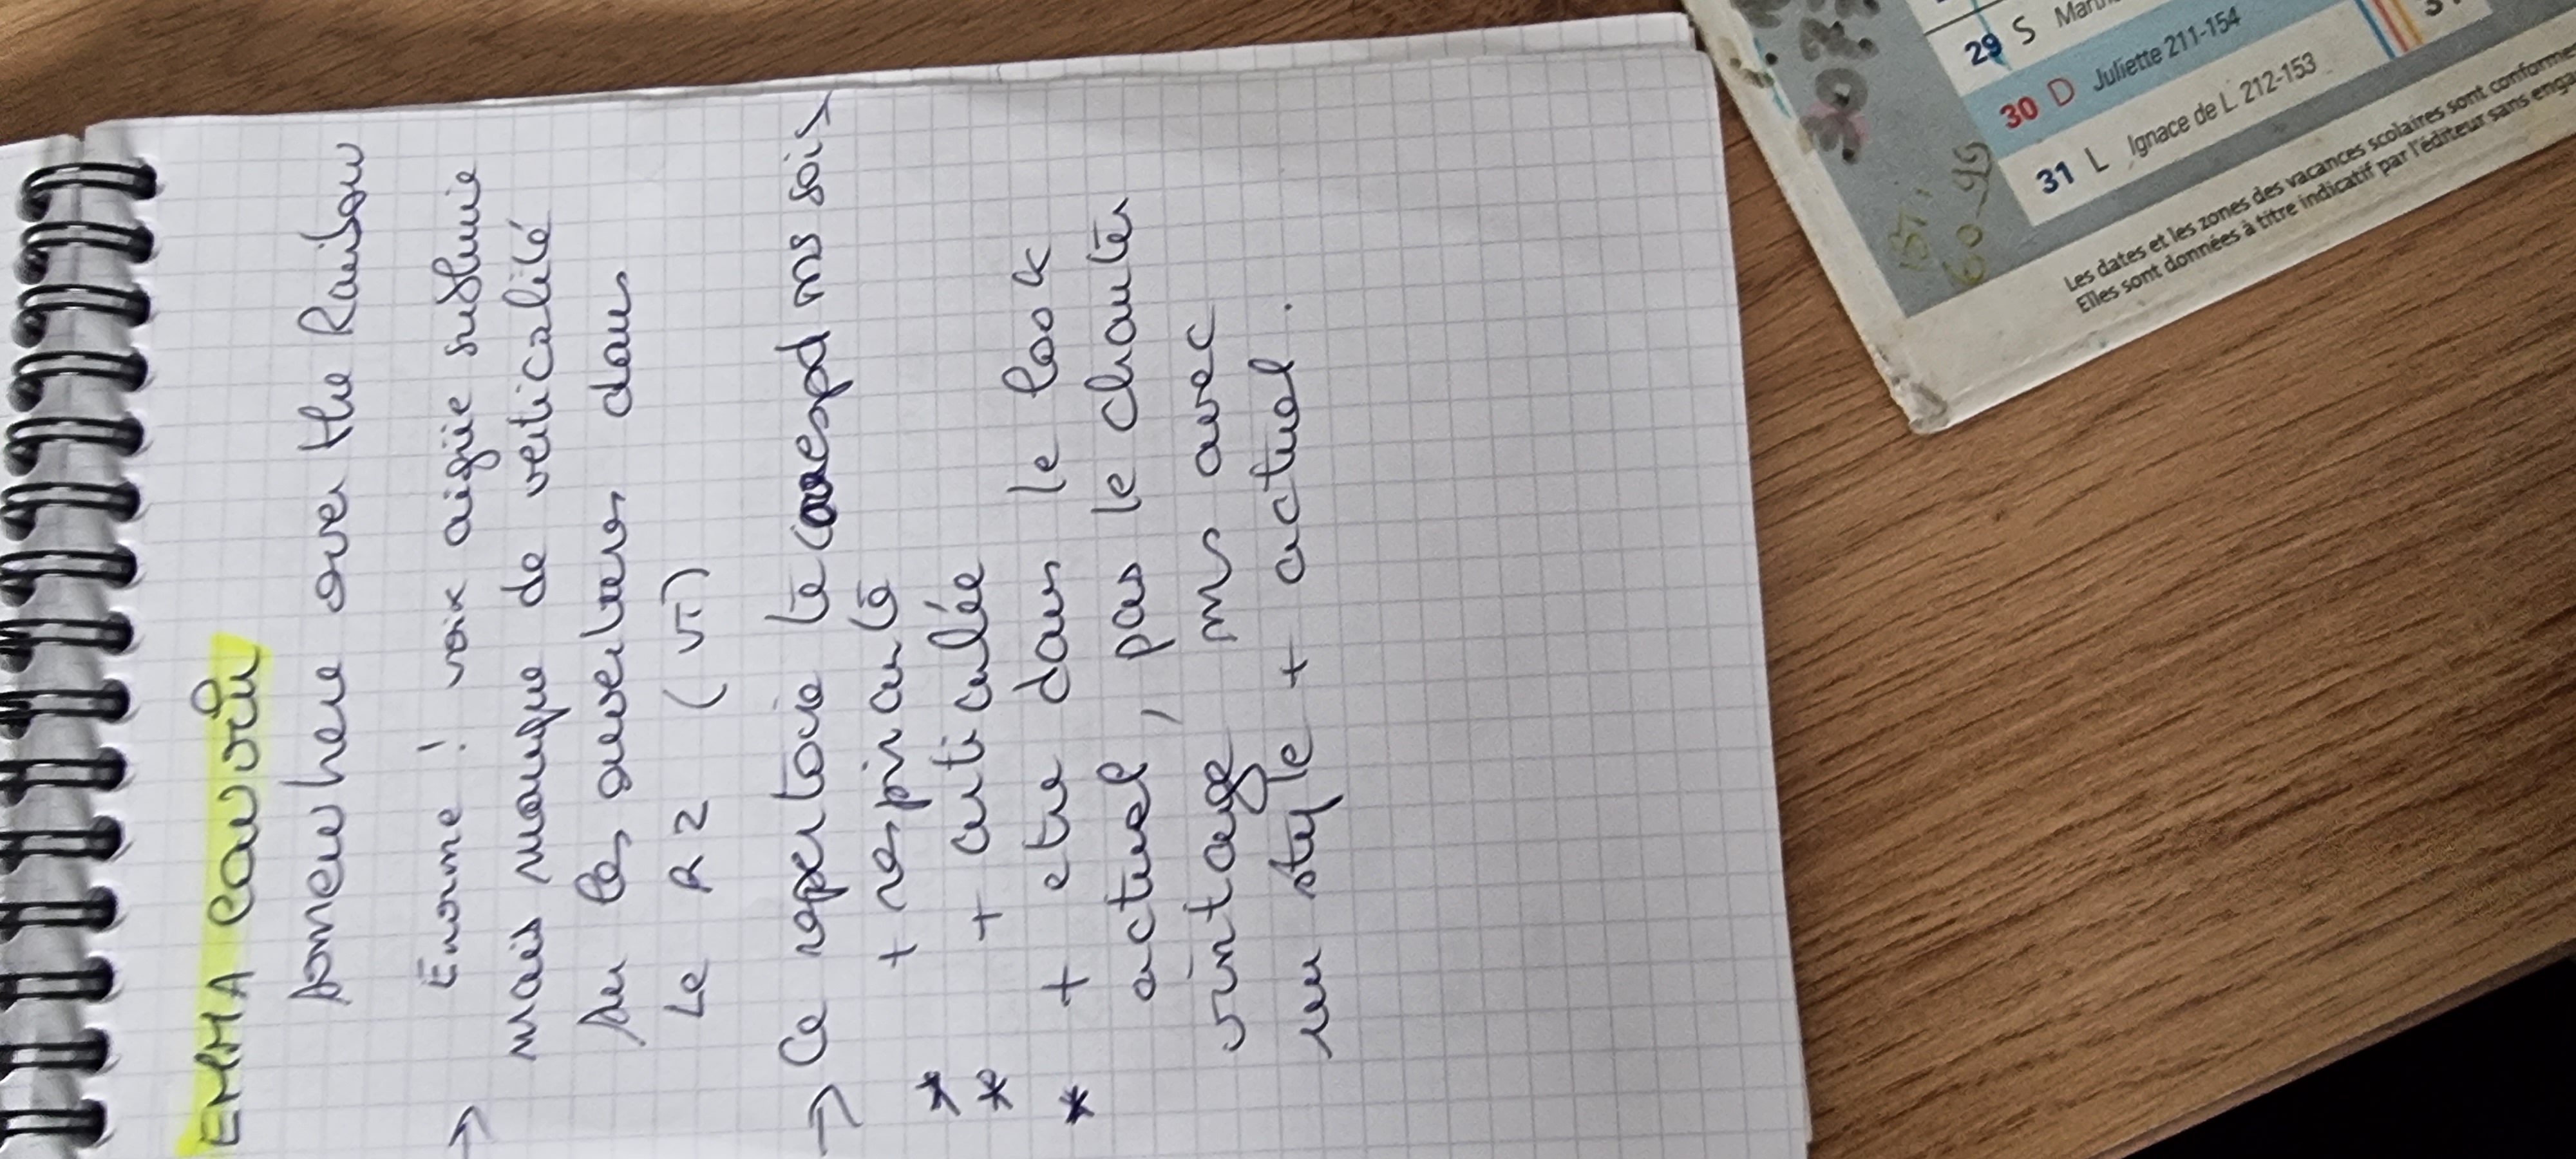 EMMA Cauvin
Somewhere over the Rainbow
→ Énorme ! voix aigüe sublime
mais manque de verticalité
sur les ouvertures dans
Le R2 (VI)
→ Ce repertoire te corespd ms sois
* + respirante
* + articulée
* + etre dans le look
actuel, pas le chanter
vintage ms avec
un style + actuel.
29 S
30 D Juliette 211-154
31 L Ignace de L. 212-153
31
60-95
Les dates et les zones des vacances scolaires sont conforme
Elles sont données à titre indicatif par l'éditeur sans enga